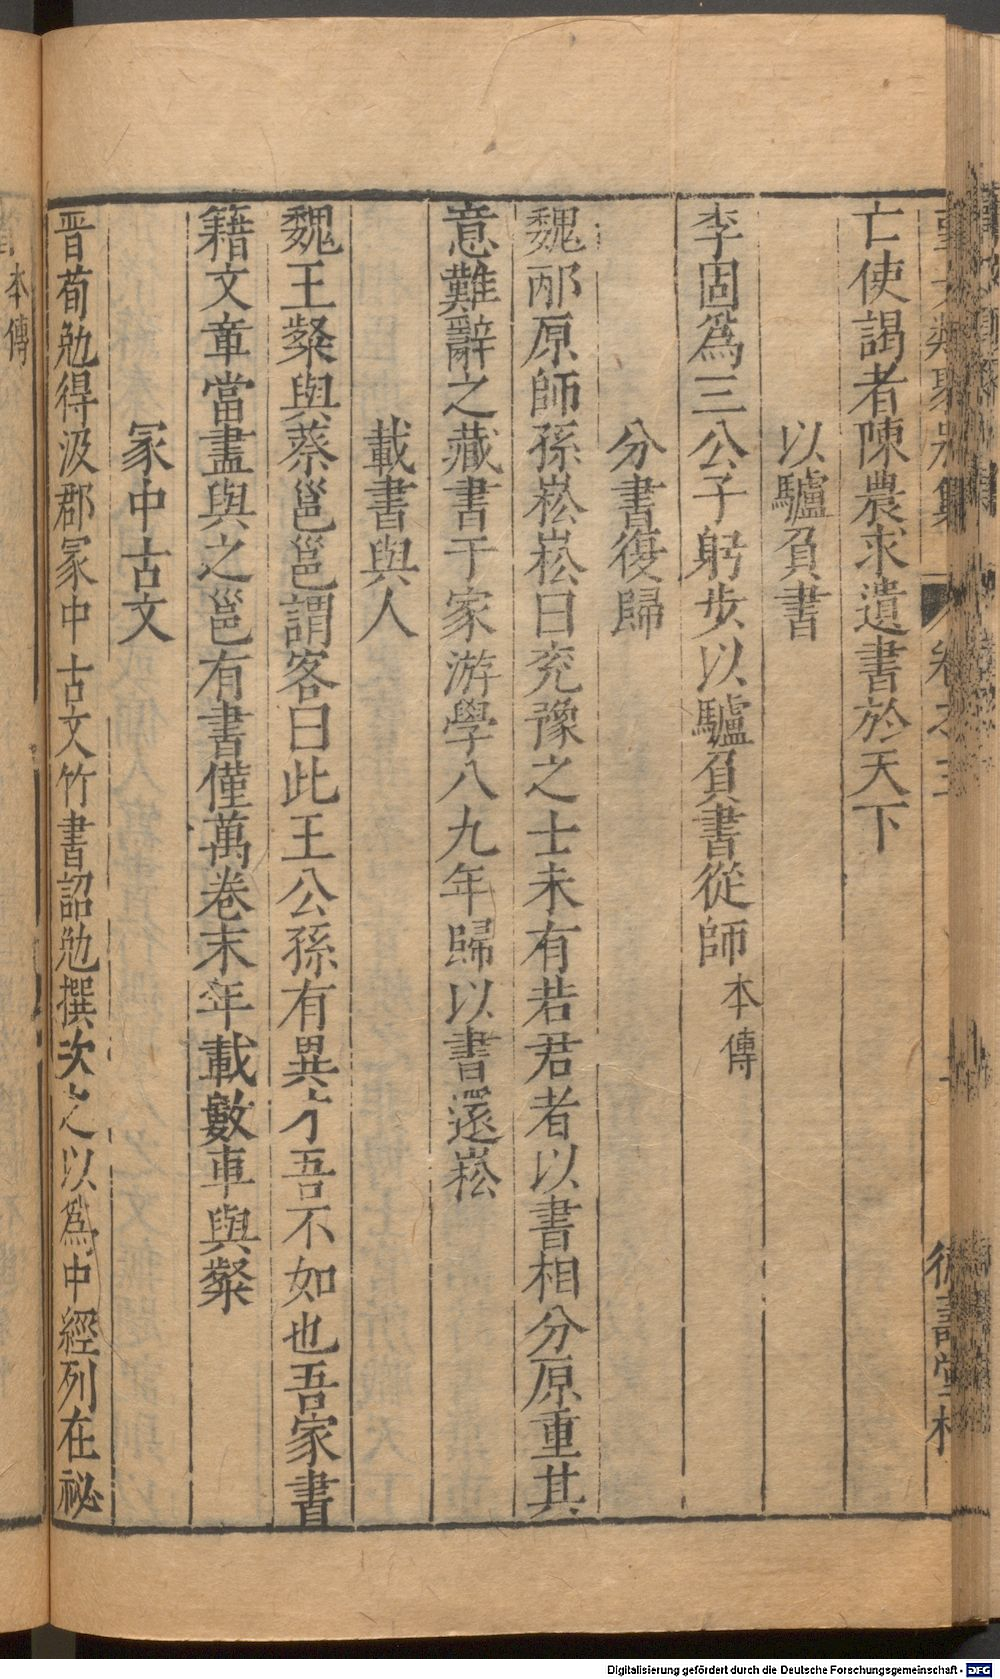 亡使謁者陳農求遺書於天下
以驢負書
李固爲三公子躬步以驢負書從師本傳
分書復歸
魏邴原師孫崧崧曰兖豫之士未有若君者以書相分原重其
意難辭之藏書于家游學八九年歸以書還崧
載書與人
魏王粲與蔡邕邕謂客曰此王公孫有異才吾不如也吾家書
籍文章當盡與之邕有書僅萬卷末年載數車與粲
冢中古文
晋荀勉得汲郡冢中古文竹書詔勉撰次之以爲中經列在祕
本傳
Digitalisierung gefördert durch die Deutsche Forschungsgemeinschaft - DFG